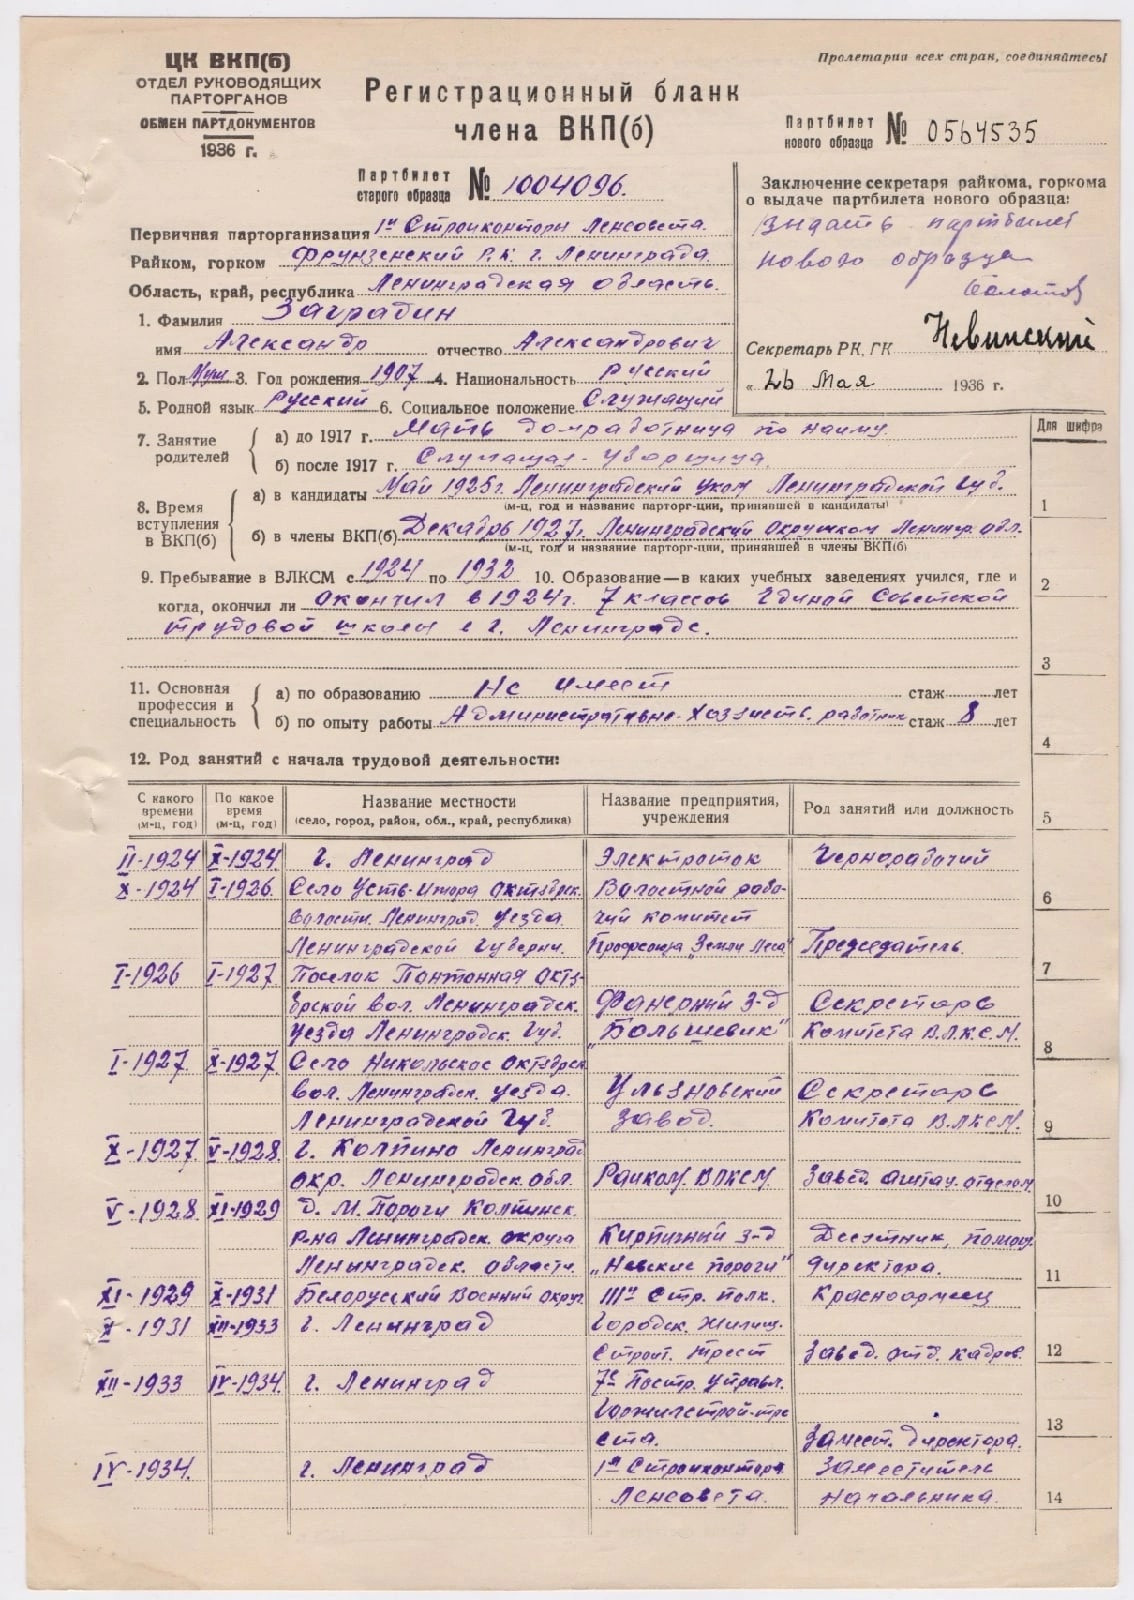 Пролетарии всех стран, соединяйтесь!
ЦК ВКП(б)
ОТДЕЛ РУКОВОДЯЩИХ
ПАРТОРГАНОВ
ОБМЕН ПАРТДОКУМЕНТОВ
1936 г.
Регистрационный бланк
члена ВКП(б)
Партбилет нового образца № 0564535
Партбилет старого образца № 1004096.
Заключение секретаря райкома, горкома
о выдаче партбилета нового образца:
Выдать партбилет
нового образца
Секретарь РК, ГК Невинский
„26 Мая 1936 г.
Первичная парторганизация 1я Стройконторы Ленсовета.
Райком, горком Фрунзенский Р.К. г. Ленинграда.
Область, край, республика Ленинградская область.
1. Фамилия Заградин
имя Александр отчество Александрович
2. Пол Муж 3. Год рождения 1907 4. Национальность русский
5. Родной язык русский 6. Социальное положение Служащий
7. Занятие родителей
а) до 1917 г. Мать домработница по найму.
б) после 1917 г. Служащая-уборщица.
Для шифра
8. Время вступления в ВКП(б)
а) в кандидаты Май 1925г. Ленинградский уком Ленинградской Губ.
(м-ц, год и название парторг-ции, принявшей в кандидаты)
б) в члены ВКП(б) Декабрь 1927г. Ленинградский Окружком Ленингр. обл.
(м-ц, год и название парторг-ции, принявшей в члены ВКП(б)
9. Пребывание в ВЛКСМ с 1924 по 1932 10. Образование—в каких учебных заведениях учился, где и
когда, окончил ли окончил в 1924г. 7 классов Единой Советской
трудовой школы в г. Ленинграде.
11. Основная профессия и специальность
а) по образованию Не имеет стаж лет
б) по опыту работы Административно-хозяйств. работник стаж 8 лет
12. Род занятий с начала трудовой деятельности:
С какого времени (м-ц, год) По какое время (м-ц, год) Название местности (село, город, район, обл., край, республика) Название предприятия, учреждения Род занятий или должность
II-1924 X-1924 г. Ленинград Электроток Чернорабочий
X-1924 I-1926. Село Усть-Ижора Октябрьск. Волостной рабо-
волости. Ленинград. уезда. чий комитет
Ленинградской Губерни. Профсоюза „Земли Леса" Председатель.
I-1926 I-1927 Поселок Понтонная Октя-
брской вол. Ленинградск. Фанерный З-д Секретарь
уезда Ленинградск. Губ. „Большевик" Комитета В.Л.К.С.М.
I-1927 X-1927 Село Никольское Октябрск
вол. Ленинградск. уезда. Ульяновский Секретарь
Ленинградской Губ. завод. Комитета ВЛКСМ.
X-1927 V-1928. г. Колпино Ленинград
окр. Ленинградск. обл. Райком. ВЛКСМ Завед. агитац. отделом.
V-1928 XI-1929 д. М. Пороги Колпинск.
р-на Ленинградск. округа Кирпичный з-д Десятник, помощ.
Ленинградск. области. „Невские пороги" директора.
XI-1929 X-1931 Белорусский Военный округ III й Стр. полк. Красноармеец
X-1931 XII-1933 г. Ленинград Городск. Жилищ.
Строит. трест Завед. отд. кадров.
XII-1933 IV-1934. г. Ленинград 7е Постр. Управл.
Горжилстрой-тре
ста. Замест. директора.
IV-1934. г. Ленинград 1я Стройконтора Заместитель
Ленсовета. Начальника.
1
2
3
4
5
6
7
8
9
10
11
12
13
14